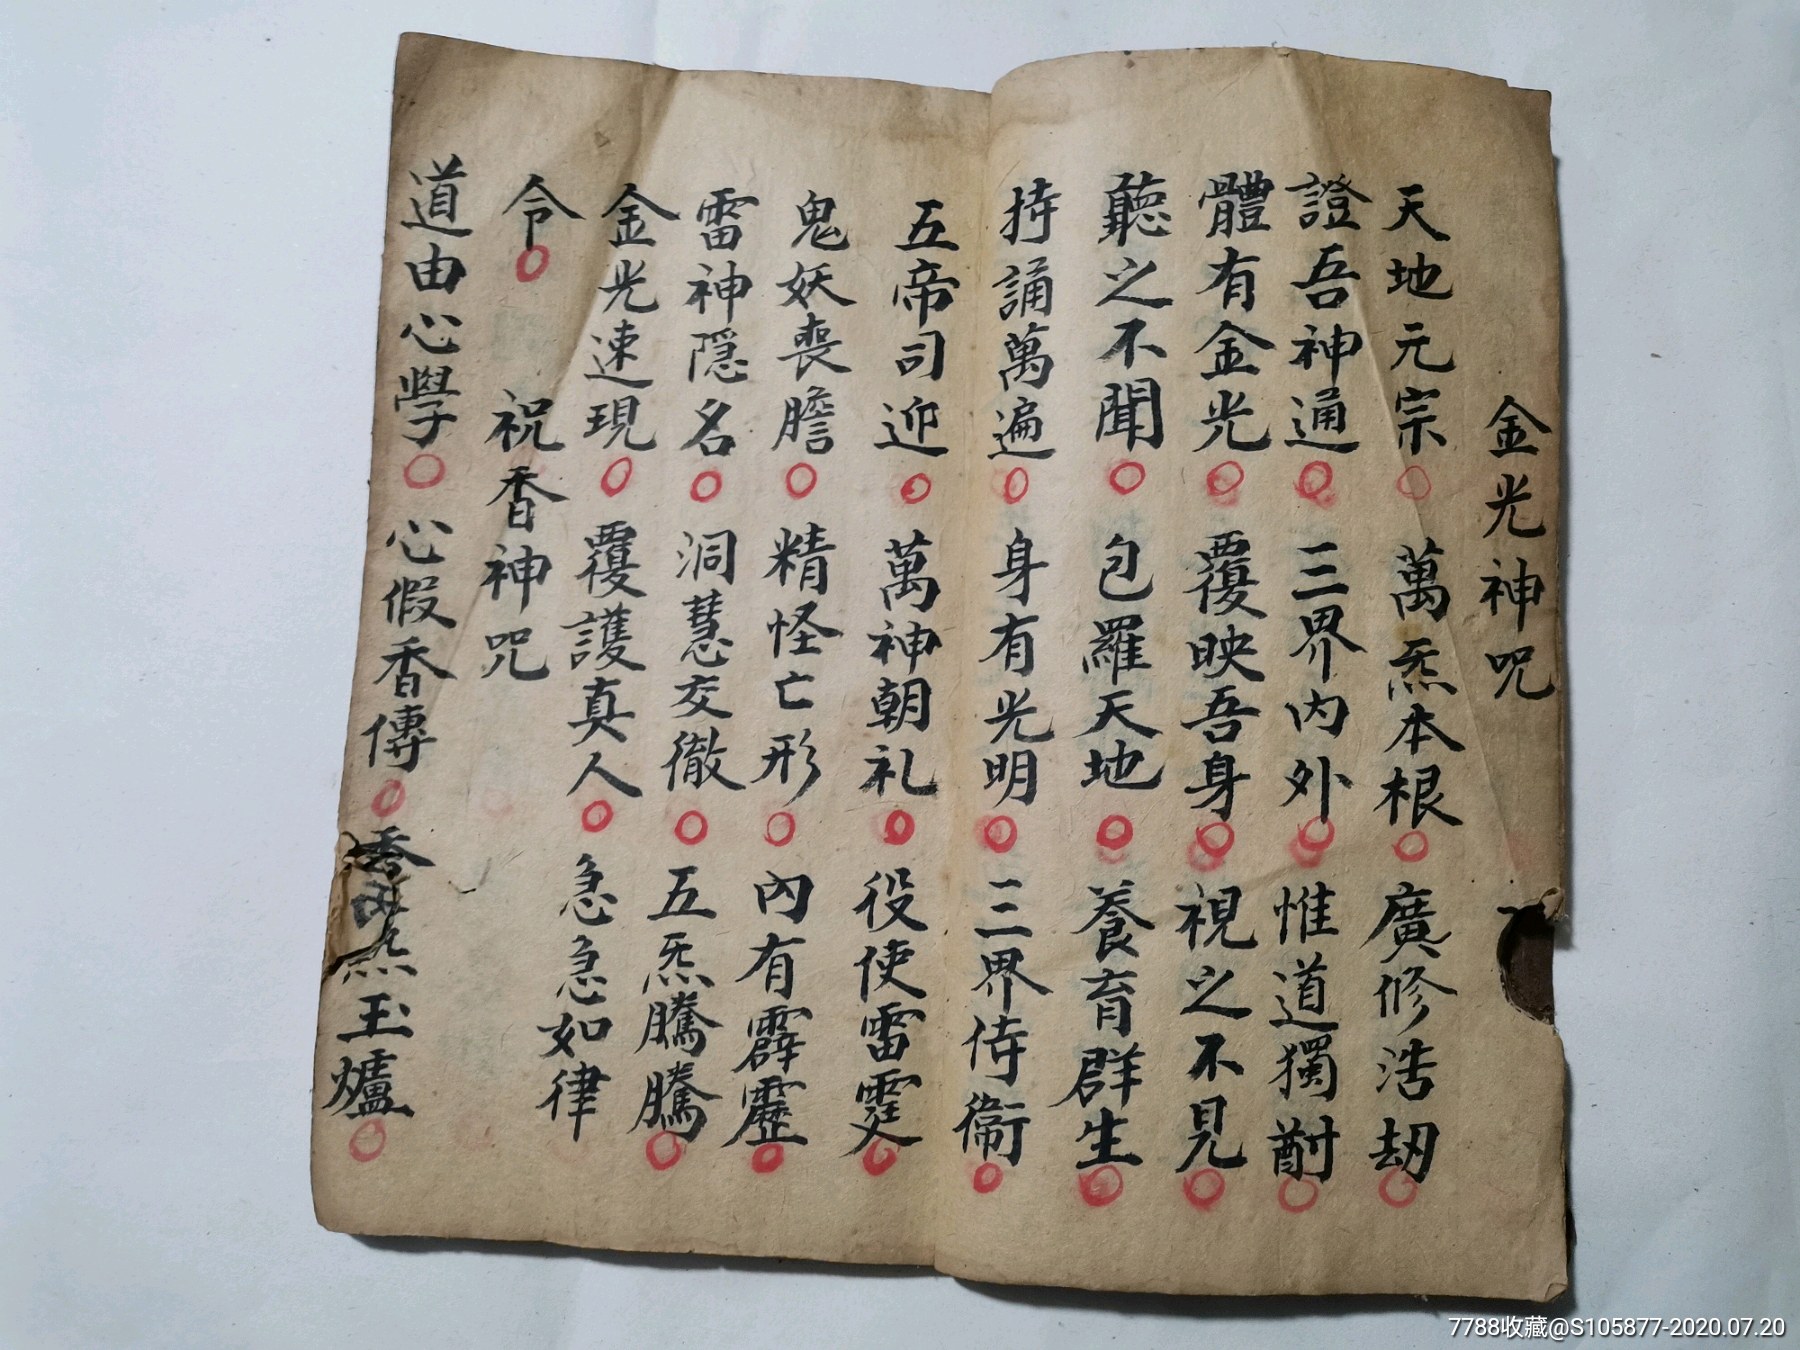 金光神咒
天地元宗 萬炁本根 廣修浩劫
證吾神通 三界内外 惟道獨
體有金光 覆映吾身 視之不見
聽之不聞 包羅天地 養育群生
持誦萬遍 身有光明 三界侍衞
五帝司迎 萬神朝礼 役使雷霆
鬼妖喪膽 精怪亡形 内有霹靂
雷神隠名 洞慧交徹 五炁騰騰
金光速現 覆護真人 急急如律
令
祝香神咒
道由心學 心假香傳 香 玉爐
7788收藏@S105877-2020.07.20